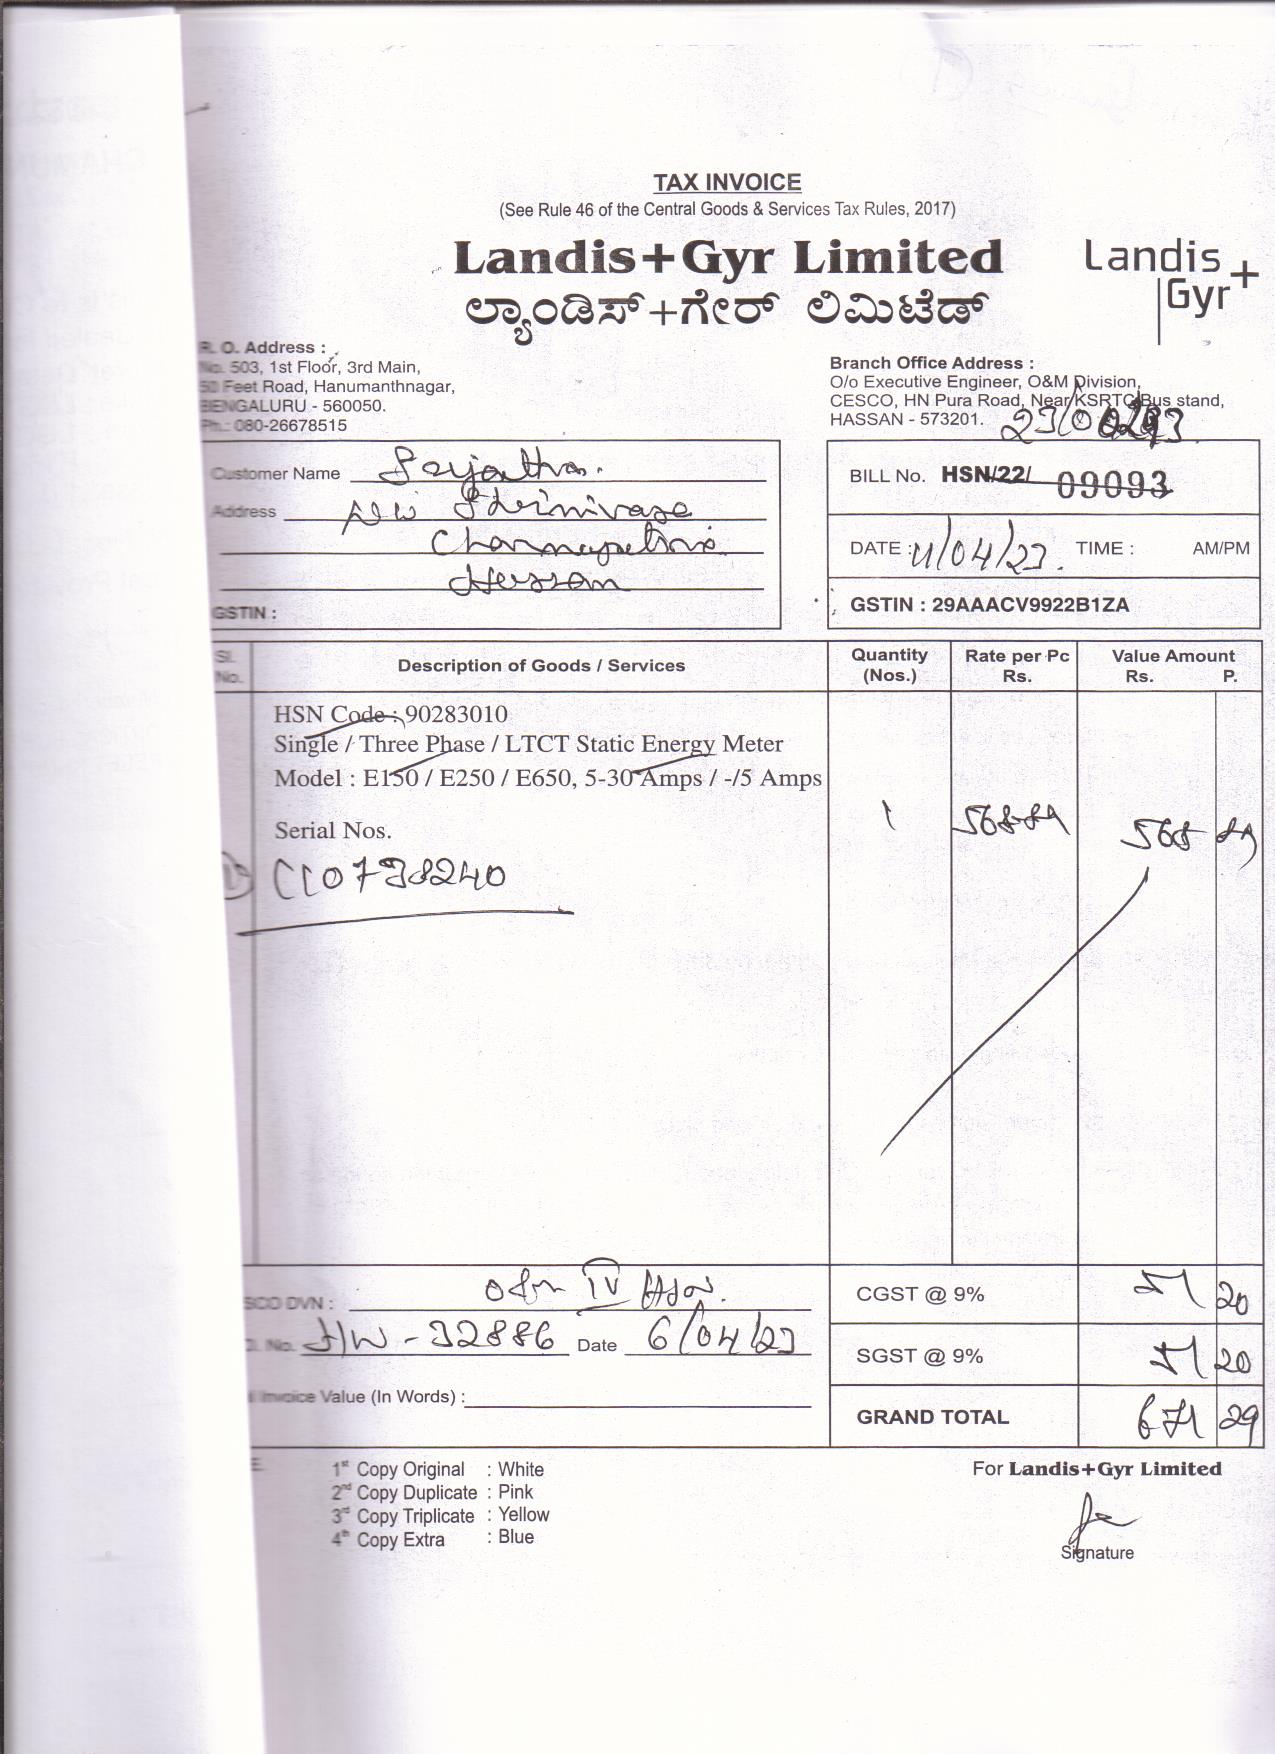 TAX INVOICE
(See Rule 46 of the Central Goods & Services Tax Rules, 2017)
Landis+Gyr Limited
ಲ್ಯಾಂಡಿಸ್+ಗೇರ್ ಲಿಮಿಟೆಡ್
Landis
Gyr+
R. O. Address :
No. 503, 1st Floor, 3rd Main,
50 Feet Road, Hanumanthnagar,
BENGALURU - 560050.
Ph.: 080-26678515
Branch Office Address :
O/o Executive Engineer, O&M Division,
CESCO, HN Pura Road, Near KSRTC Bus stand,
HASSAN - 573201.
Customer Name
Address
Hassan
GSTIN :
BILL No. HSN/22/ 09093
DATE : 11/04/23. TIME : AM/PM
GSTIN : 29AAACV9922B1ZA
Sl. No. Description of Goods / Services Quantity (Nos.) Rate per Pc Rs. Value Amount Rs. P.
HSN Code : 90283010
Single / Three Phase / LTCT Static Energy Meter
Model : E150 / E250 / E650, 5-30 Amps / -/5 Amps
1 568-89 568 89
Serial Nos.
DVN : IV HSN.
No. 32886 Date 6/04/23
Invoice Value (In Words) :
CGST @ 9% 51 20
SGST @ 9% 51 20
GRAND TOTAL 671 29
1st Copy Original : White
2nd Copy Duplicate : Pink
3rd Copy Triplicate : Yellow
4th Copy Extra : Blue
For Landis+Gyr Limited
Signature